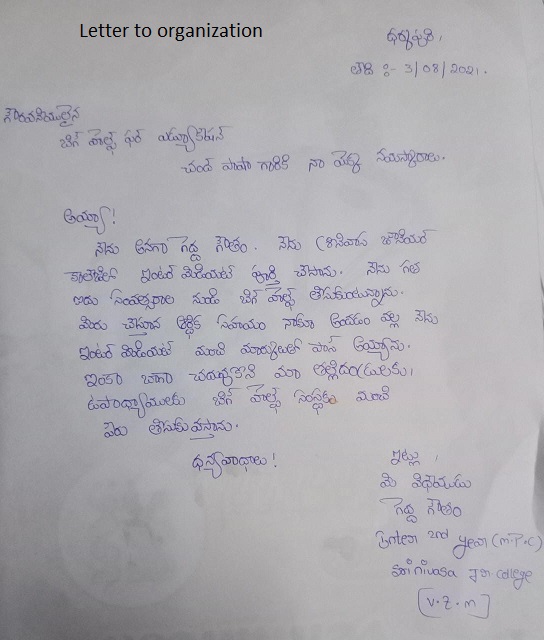 Letter to organization
ధర్మపురి,
తేది :- 3/08/2021.
గౌరవనీయులైన
బిగ్ హెల్ప్ ఫర్ ఎడ్యుకేషన్
చంద్ పాషా గారికి నా యొక్క నమస్కారాలు.
అయ్యా!
నేను అనగా గెద్ద గౌతం. నేను శ్రీనివాస జూనియర్
కాలేజిలో ఇంటర్ మీడియట్ పూర్తి చేసాను. నేను గత
ఐదు సంవత్సరాల నుండి బిగ్ హెల్ప్ తీసుకుంటున్నాను.
మీరు చేస్తూన ఆర్థిక సహాయం నాకూ ఆయడం వల్ల నేను
ఇంటర్ మీడియట్ మంచి మార్కులతో పాస్ అయ్యాను.
ఇంకా బాగా చదువుకొని మా తల్లిదండ్రులకు,
ఉపాధ్యాములకు బిగ్ హెల్ప్ సంస్థకు మంచి
పేరు తీసుకువస్తాను.
ధన్యవాదాలు!
ఇట్లు,
మీ విధేయుడు
గెద్ద గౌతం
Inter 2nd year (M.P.C)
Srinivasa Jr. college
[V.Z.M]